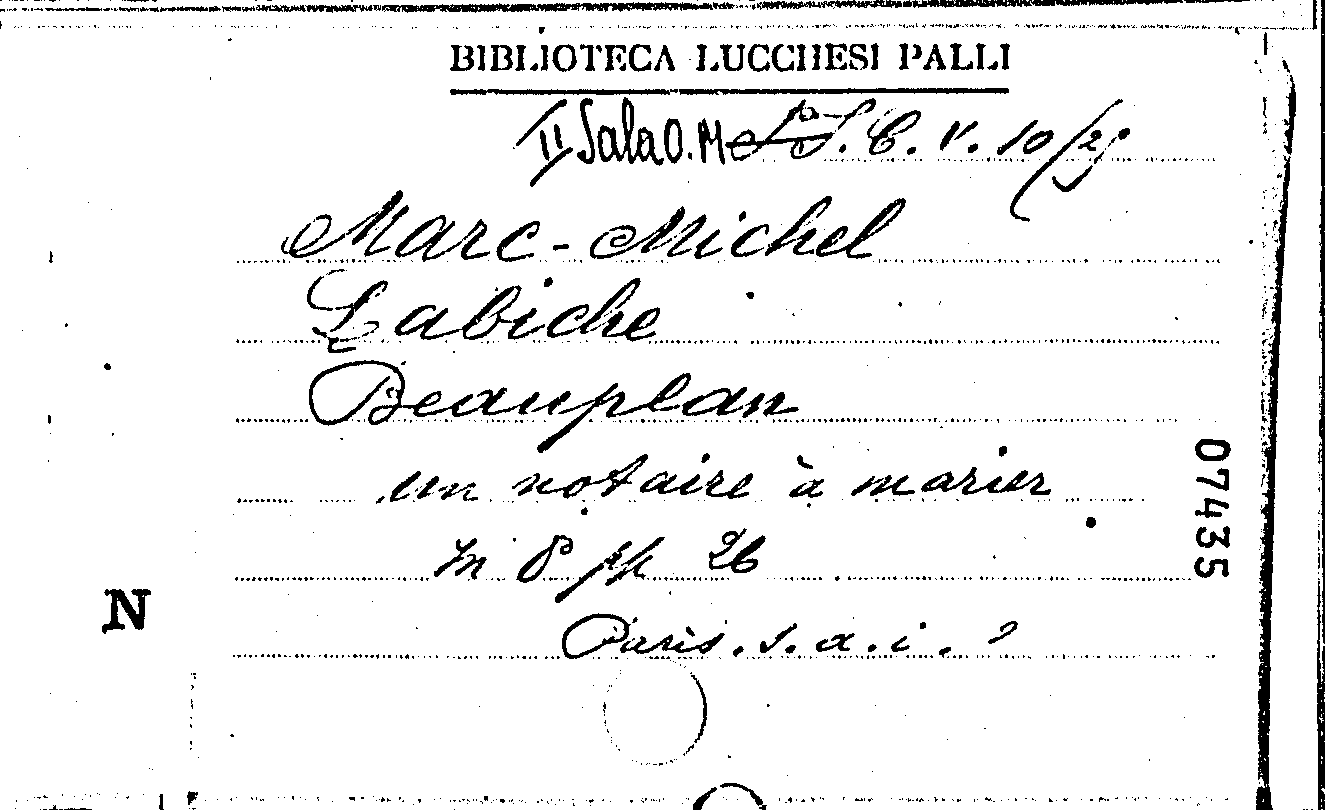 BIBLIOTECA LUCCHESI PALLI
II Sala O. M. S. C. V. 10/2
Marc-Michel
Labiche
Beauplan
un notaire à marier
in 8° pp 26
Paris. s. a. i. ?
07435
N